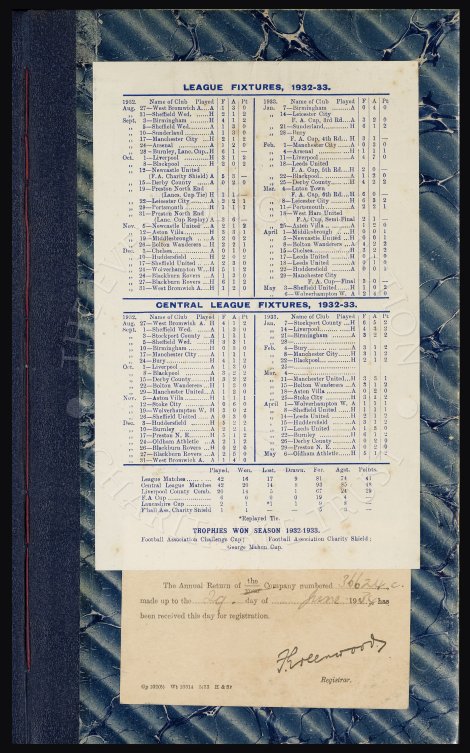 LEAGUE FIXTURES, 1932-33.
1932. Name of Club Played F A Pt
Aug. 27—West Bromwich A. A 1 3 0
„ 31—Sheffield Wed. H 2 1 2
Sept. 3—Birmingham H 4 1 2
„ 5—Sheffield Wed. A 1 3 0
„ 10—Sunderland A 1 3 0
„ 17—Manchester City H 2 1 2
„ 24—Arsenal A 1 2 0
„ 28—Burnley, Lanc. Cup H 6 1 —
Oct. 1—Liverpool H 3 1 2
„ 8—Blackpool H 2 0 2
„ 12—Newcastle United
(F.A. Charity Shield) A 5 3 —
„ 15—Derby County A 0 2 0
„ 19—Preston North End
(Lanc. Cup Tie) H 1 1 —
„ 22—Leicester City A 2 2 1
„ 29—Portsmouth H 1 1 1
„ 31—Preston North End
(Lanc. Cup Replay) A 3 6 —
Nov. 5—Newcastle United A 2 1 2
„ 12—Aston Villa H 3 3 1
„ 19—Middlesbrough A 2 0 2
„ 26—Bolton Wanderers H 2 2 1
Dec. 3—Chelsea A 0 1 0
„ 10—Huddersfield H 2 0 2
„ 17—Sheffield United A 2 3 0
„ 24—Wolverhampton W. H 5 1 2
„ 26—Blackburn Rovers A 1 3 0
„ 27—Blackburn Rovers H 6 1 2
„ 31—West Bromwich A. H 1 2 0
1933. Name of Club Played F A Pt
Jan. 7—Birmingham A 0 4 0
„ 14—Leicester City
F.A. Cup, 3rd Rd. A 3 2
„ 21—Sunderland H 6 1 2
„ 28—Bury
F.A. Cup, 4th Rd. H 3 1 —
Feb. 1—Manchester City A 0 3 0
„ 4—Arsenal H 1 1 1
„ 11—Liverpool A 4 7 0
„ 18—Leeds United
F.A. Cup, 5th Rd. H 2 0
„ 22—Blackpool A 1 2 0
„ 25—Derby County H 4 2 2
Mar. 4—Luton Town
F.A. Cup, 6th Rd. H 6 0 —
„ 8—Leicester City H 6 3 2
„ 11—Portsmouth A 2 2 1
„ 18—West Ham United
F.A. Cup, Semi-Final 2 1 —
„ 25—Aston Villa A 1 2 0
April 1—Middlesbrough H 0 0 1
„ 5—Newcastle United H 0 0 1
„ 8—Bolton Wanderers A 4 2 2
„ 15—Chelsea H 3 2 2
„ 17—Leeds United A 0 1 0
„ 18—Leeds United H 0 1 0
„ 22—Huddersfield A 0 0 1
„ 29—Manchester City
F.A. Cup—Final 3 0 —
May 3—Sheffield United H 1 0 2
„ 6—Wolverhampton W. A 2 4 0
CENTRAL LEAGUE FIXTURES, 1932-33.
1932. Name of Club Played F A Pt
Aug. 27—West Bromwich A. H 4 1 2
Sept. 1—Sheffield Wed. A 1 3 0
„ 3—Stockport County A 1 1 1
„ 8—Sheffield Wed. H 3 3 1
„ 10—Birmingham H
„ 17—Manchester City A 1 1 1
„ 24—Bury H 4 1 2
Oct. 1—Liverpool A 1 3 0
„ 8—Blackpool A 3 2 2
„ 15—Derby County H 3 2 2
„ 22—Bolton Wanderers H
„ 29—Manchester United A
Nov. 5—Aston Villa H 1 1 1
„ 12—Stoke City A 0 6 0
„ 19—Wolverhampton W. H 3 0 2
„ 26—Sheffield United A 0 3 0
Dec. 3—Huddersfield H 5 2 2
„ 10—Burnley A 2 2 1
„ 17—Preston N. E. H 5 1 2
„ 24—Oldham Athletic A 2 1 2
„ 26—Blackburn Rovers H
„ 27—Blackburn Rovers A
„ 31—West Bromwich A. A 1 4 0
1933. Name of Club Played F A Pt
Jan. 7—Stockport County H 6 5 2
„ 14—Liverpool H 4 3 2
„ 21—Birmingham A 3 2 2
„ 28—
Feb. 4—Bury A 3 1 2
„ 8—Manchester City H 3 1 2
„ 22—Blackpool H 2 1 2
„ 25—
Mar. 4—
„ 11—Manchester United H 3 3 1
„ 15—Bolton Wanderers A 3 1 2
„ 18—Aston Villa A 0 2 0
„ 25—Stoke City H 3 1 2
April 1—Wolverhampton W. A 1 1 1
„ 8—Sheffield United H 1 1 1
„ 14—Leeds United H 2 1 2
„ 15—Huddersfield A 3 1 2
„ 17—Leeds United A 1 5 0
„ 22—Burnley H
„ 26—Derby County A 0 2 0
„ 29—Preston N. E. A 0 2 0
May 6—Oldham Athletic H 3 1 2
Played. Won. Lost. Drawn. For. Agst. Points.
League Matches 42 16 17 9 81 74 41
Central League Matches 42 20 14 8 93 85 48
Liverpool County Comb. 20 14 5 1 67 24 29
F.A Cup 6 6 0 0 19 4 —
Lancashire Cup 2 1 *1 1
F'ball Ass. Charity Shield 1 1 — — 5 3 —
*Replayed Tie.
TROPHIES WON SEASON 1932-1933.
Football Association Challenge Cup; Football Association Charity Shield;
George Mahon Cup.
The Annual Return of the Company numbered 36624 c.
made up to the 29. day of June 19 has
been received this day for registration.
Registrar.